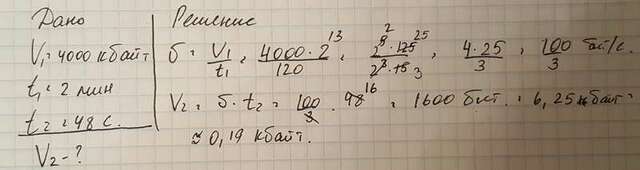 Дано
V₁ = 4000 кбайт
t₁ = 2 мин
t₂ = 48 с.
V₂ - ?
Решение
б = V₁/t₁ = 4000 · 2¹³/120 = 2⁵ · 125 25/2³ · 15 3 = 4 · 25/3 = 100/3 бит/с.
V₂ = б · t₂ = 100/3 · 48 16 = 1600 бит. = 6,25 кбайт =
≈ 0,19 кбайт.